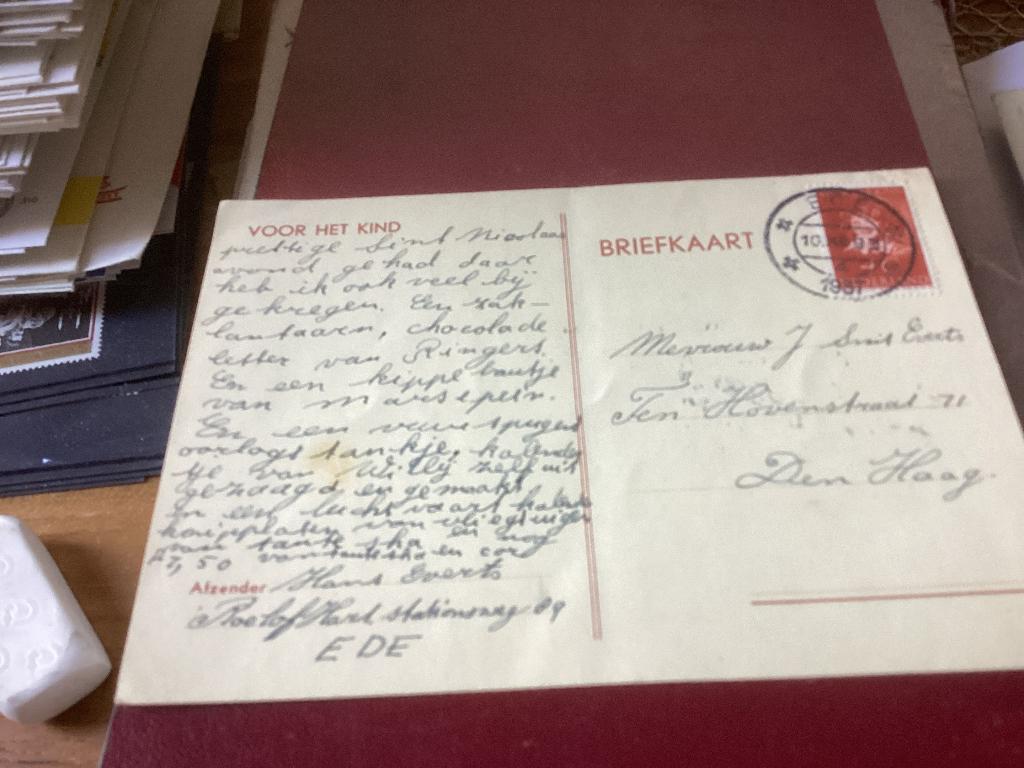 VOOR HET KIND
prettige Sint Nicolaas
avond gehad daar
heb ik ook veel bij
gekregen. En zak-
lantaarn, chocolade
letter van Ringers.
En een kippe boutje
van marsepein.
En een vuurspugend
oorlogs tankje,
van Willy zelf uit
gezaagd en gemaakt
en een luchtvaart
van vliegtuigen
van tante en nog
7,50 van en cor
Afzender Hans Everts
Roelof Hart stationsweg 89
EDE
BRIEFKAART
1937
Mevrouw J Smit Everts
Ten Hovenstraat 71
Den Haag.